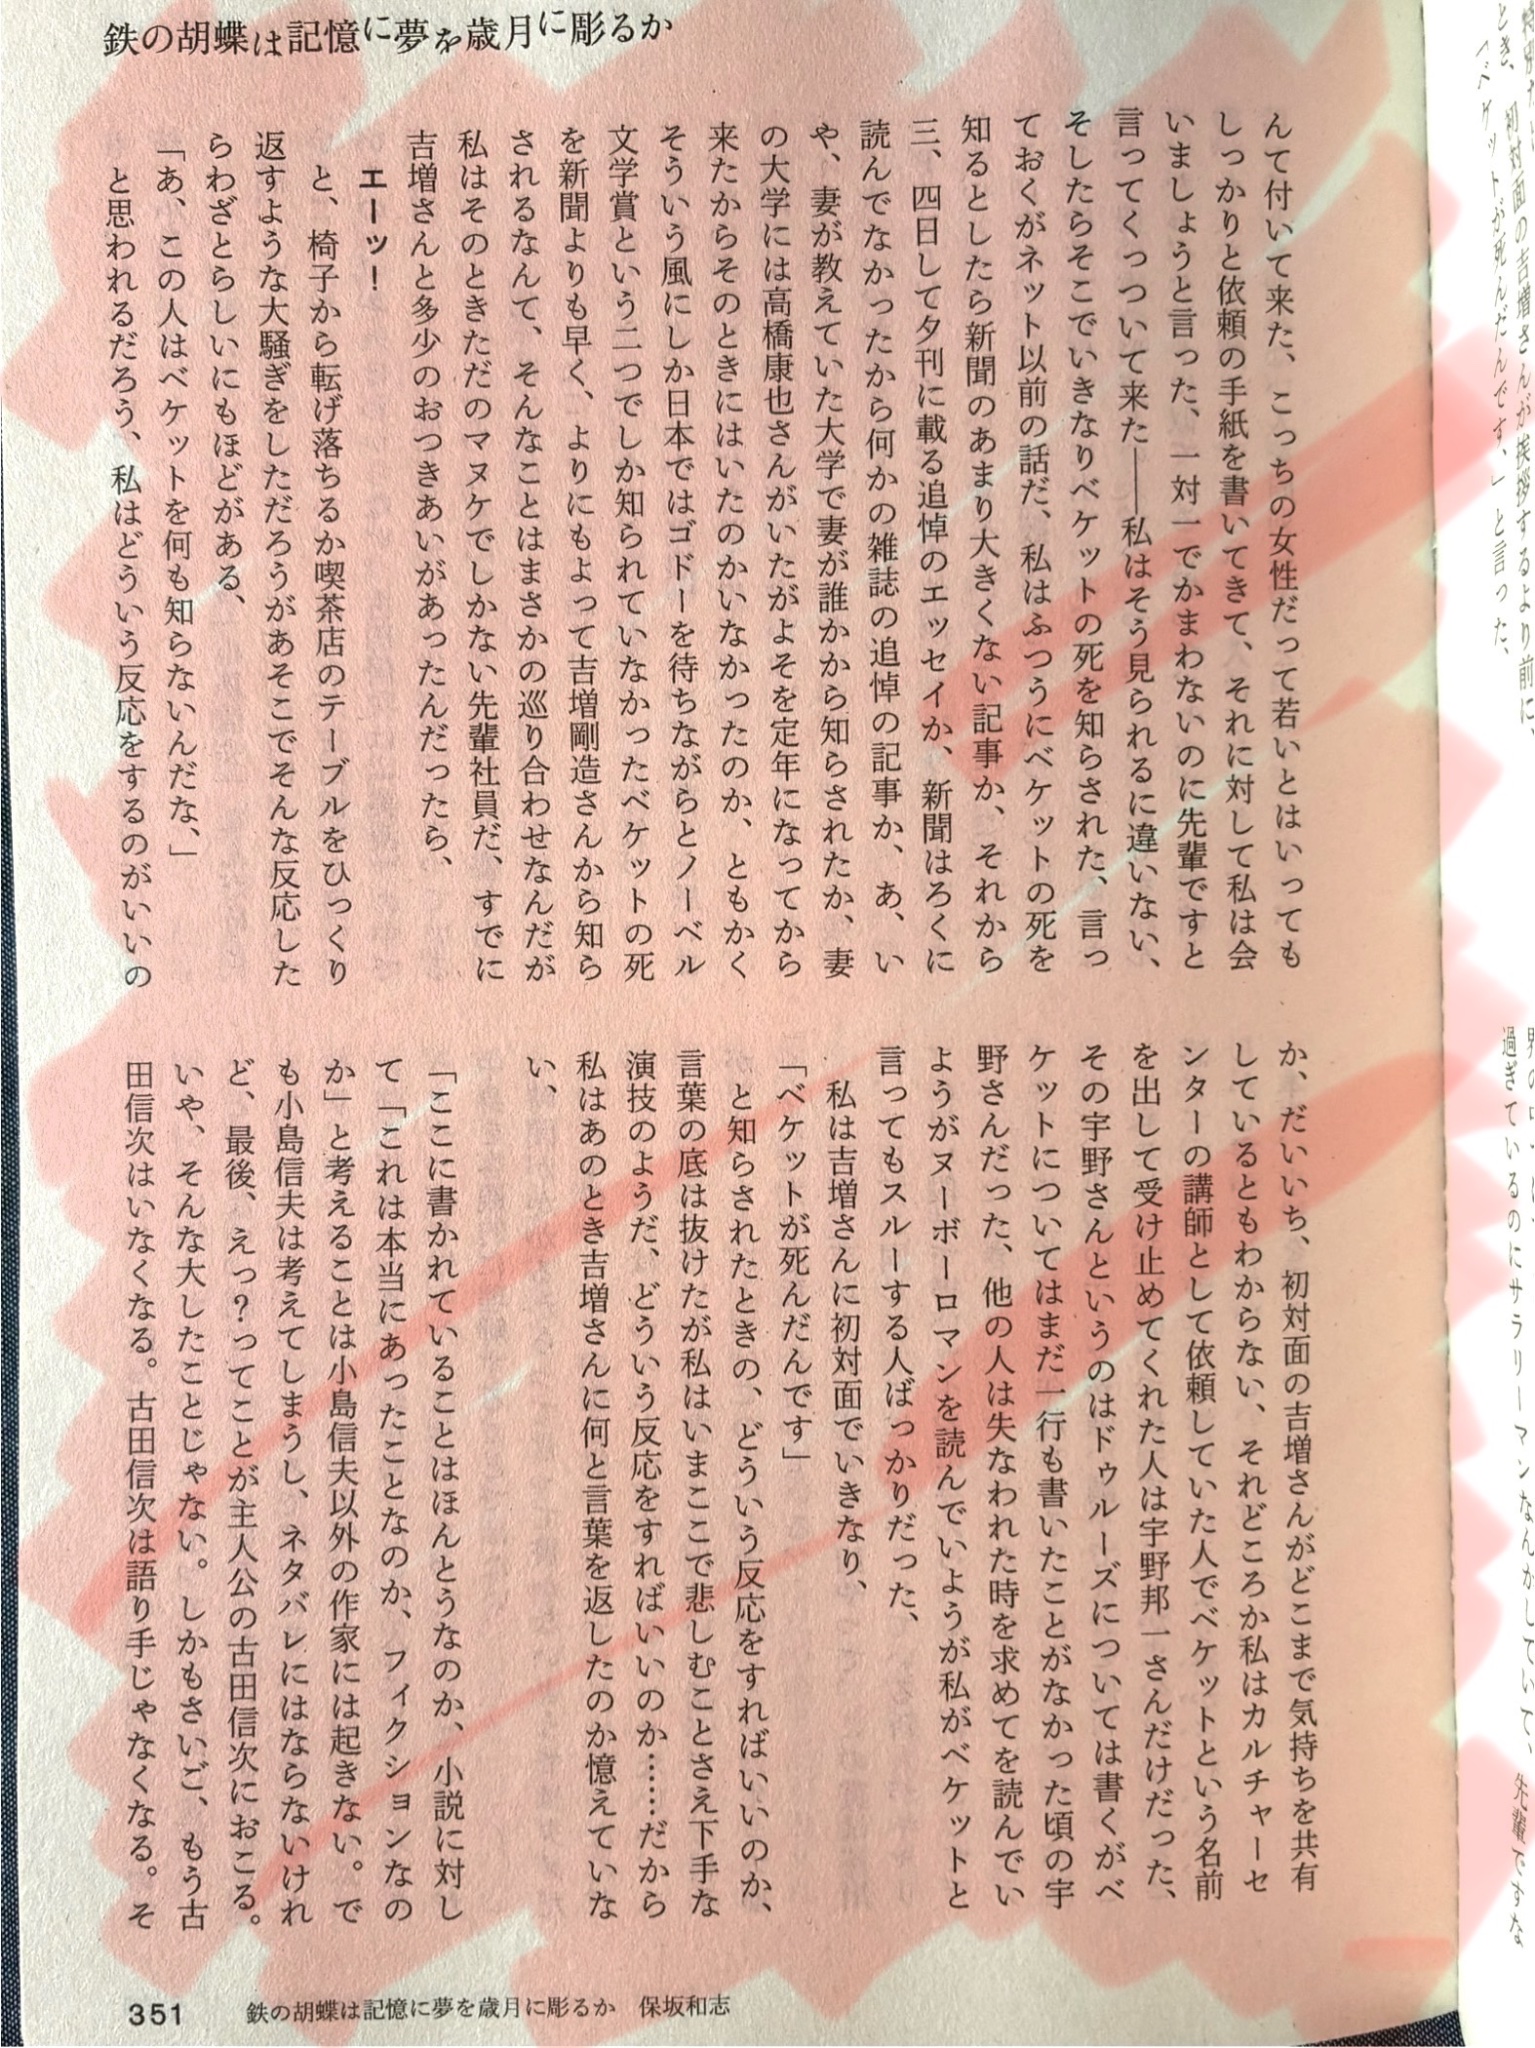 鉄の胡蝶は記憶に夢を歳月に彫るか
んて付いて来た、こっちの女性だって若いとはいっても
しっかりと依頼の手紙を書いてきて、それに対して私は会
いましょうと言った、一対一でかまわないのに先輩ですと
言ってくっついて来た――私はそう見られるに違いない、
そしたらそこでいきなりベケットの死を知らされた、言っ
ておくがネット以前の話だ、私はふつうにベケットの死を
知るとしたら新聞のあまり大きくない記事か、それから
三、四日して夕刊に載る追悼のエッセイか、新聞はろくに
読んでなかったから何かの雑誌の追悼の記事か、あ、い
や、妻が教えていた大学で妻が誰かから知らされたか、妻
の大学には高橋康也さんがいたがよそを定年になってから
来たからそのときにはいたのかいなかったのか、ともかく
そういう風にしか日本ではゴドーを待ちながらとノーベル
文学賞という二つでしか知られていなかったベケットの死
を新聞よりも早く、よりにもよって吉増剛造さんから知ら
されるなんて、そんなことはまさかの巡り合わせなんだが
私はそのときただのマヌケでしかない先輩社員だ、すでに
吉増さんと多少のおつきあいがあったんだったら、
エーッ！
と、椅子から転げ落ちるか喫茶店のテーブルをひっくり
返すような大騒ぎをしただろうがあそこでそんな反応した
らわざとらしいにもほどがある、
「あ、この人はベケットを何も知らないんだな、」
と思われるだろう、私はどういう反応をするのがいいの
か、だいいち、初対面の吉増さんがどこまで気持ちを共有
しているともわからない、それどころか私はカルチャーセ
ンターの講師として依頼していた人でベケットという名前
を出して受け止めてくれた人は宇野邦一さんだけだった、
その宇野さんというのはドゥルーズについては書くがベ
ケットについてはまだ一行も書いたことがなかった頃の宇
野さんだった、他の人は失なわれた時を求めてを読んでい
ようがヌーボーロマンを読んでいようが私がベケットと
言ってもスルーする人ばっかりだった、
私は吉増さんに初対面でいきなり、
「ベケットが死んだんです」
と知らされたときの、どういう反応をすればいいのか、
言葉の底は抜けたが私はいまここで悲しむことさえ下手な
演技のようだ、どういう反応をすればいいのか……だから
私はあのとき吉増さんに何と言葉を返したのか憶えていな
い、
「ここに書かれていることはほんとうなのか、小説に対し
て「これは本当にあったことなのか、フィクションなの
か」と考えることは小島信夫以外の作家には起きない。で
も小島信夫は考えてしまうし、ネタバレにはならないけれ
ど、最後、えっ？ってことが主人公の古田信次におこる。
いや、そんな大したことじゃない。しかもさいご、もう古
田信次はいなくなる。古田信次は語り手じゃなくなる。そ
351 鉄の胡蝶は記憶に夢を歳月に彫るか 保坂和志
とき、初対面の吉増さんが挨拶するより前に、
「ベケットが死んだんです、」と言った、
過ぎているのにサラリーマンなんかしていて、先輩ですな